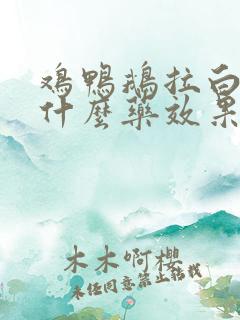 鸡鸭鹅拉白
什麽药效果
木木啊樱
未经同意禁止转载